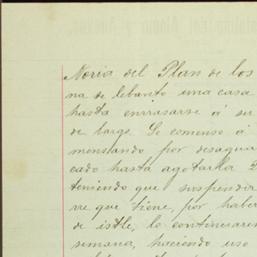 Noria del Plan de los
na se lebantó una casa
hasta enrrasarse á su
de largo. Se comenso á
montando por desague
cado hasta agotarla 2
teniendo que suspendir
rre que tiene, por haber
de istle, lo continuaren
semana, haciendo uso